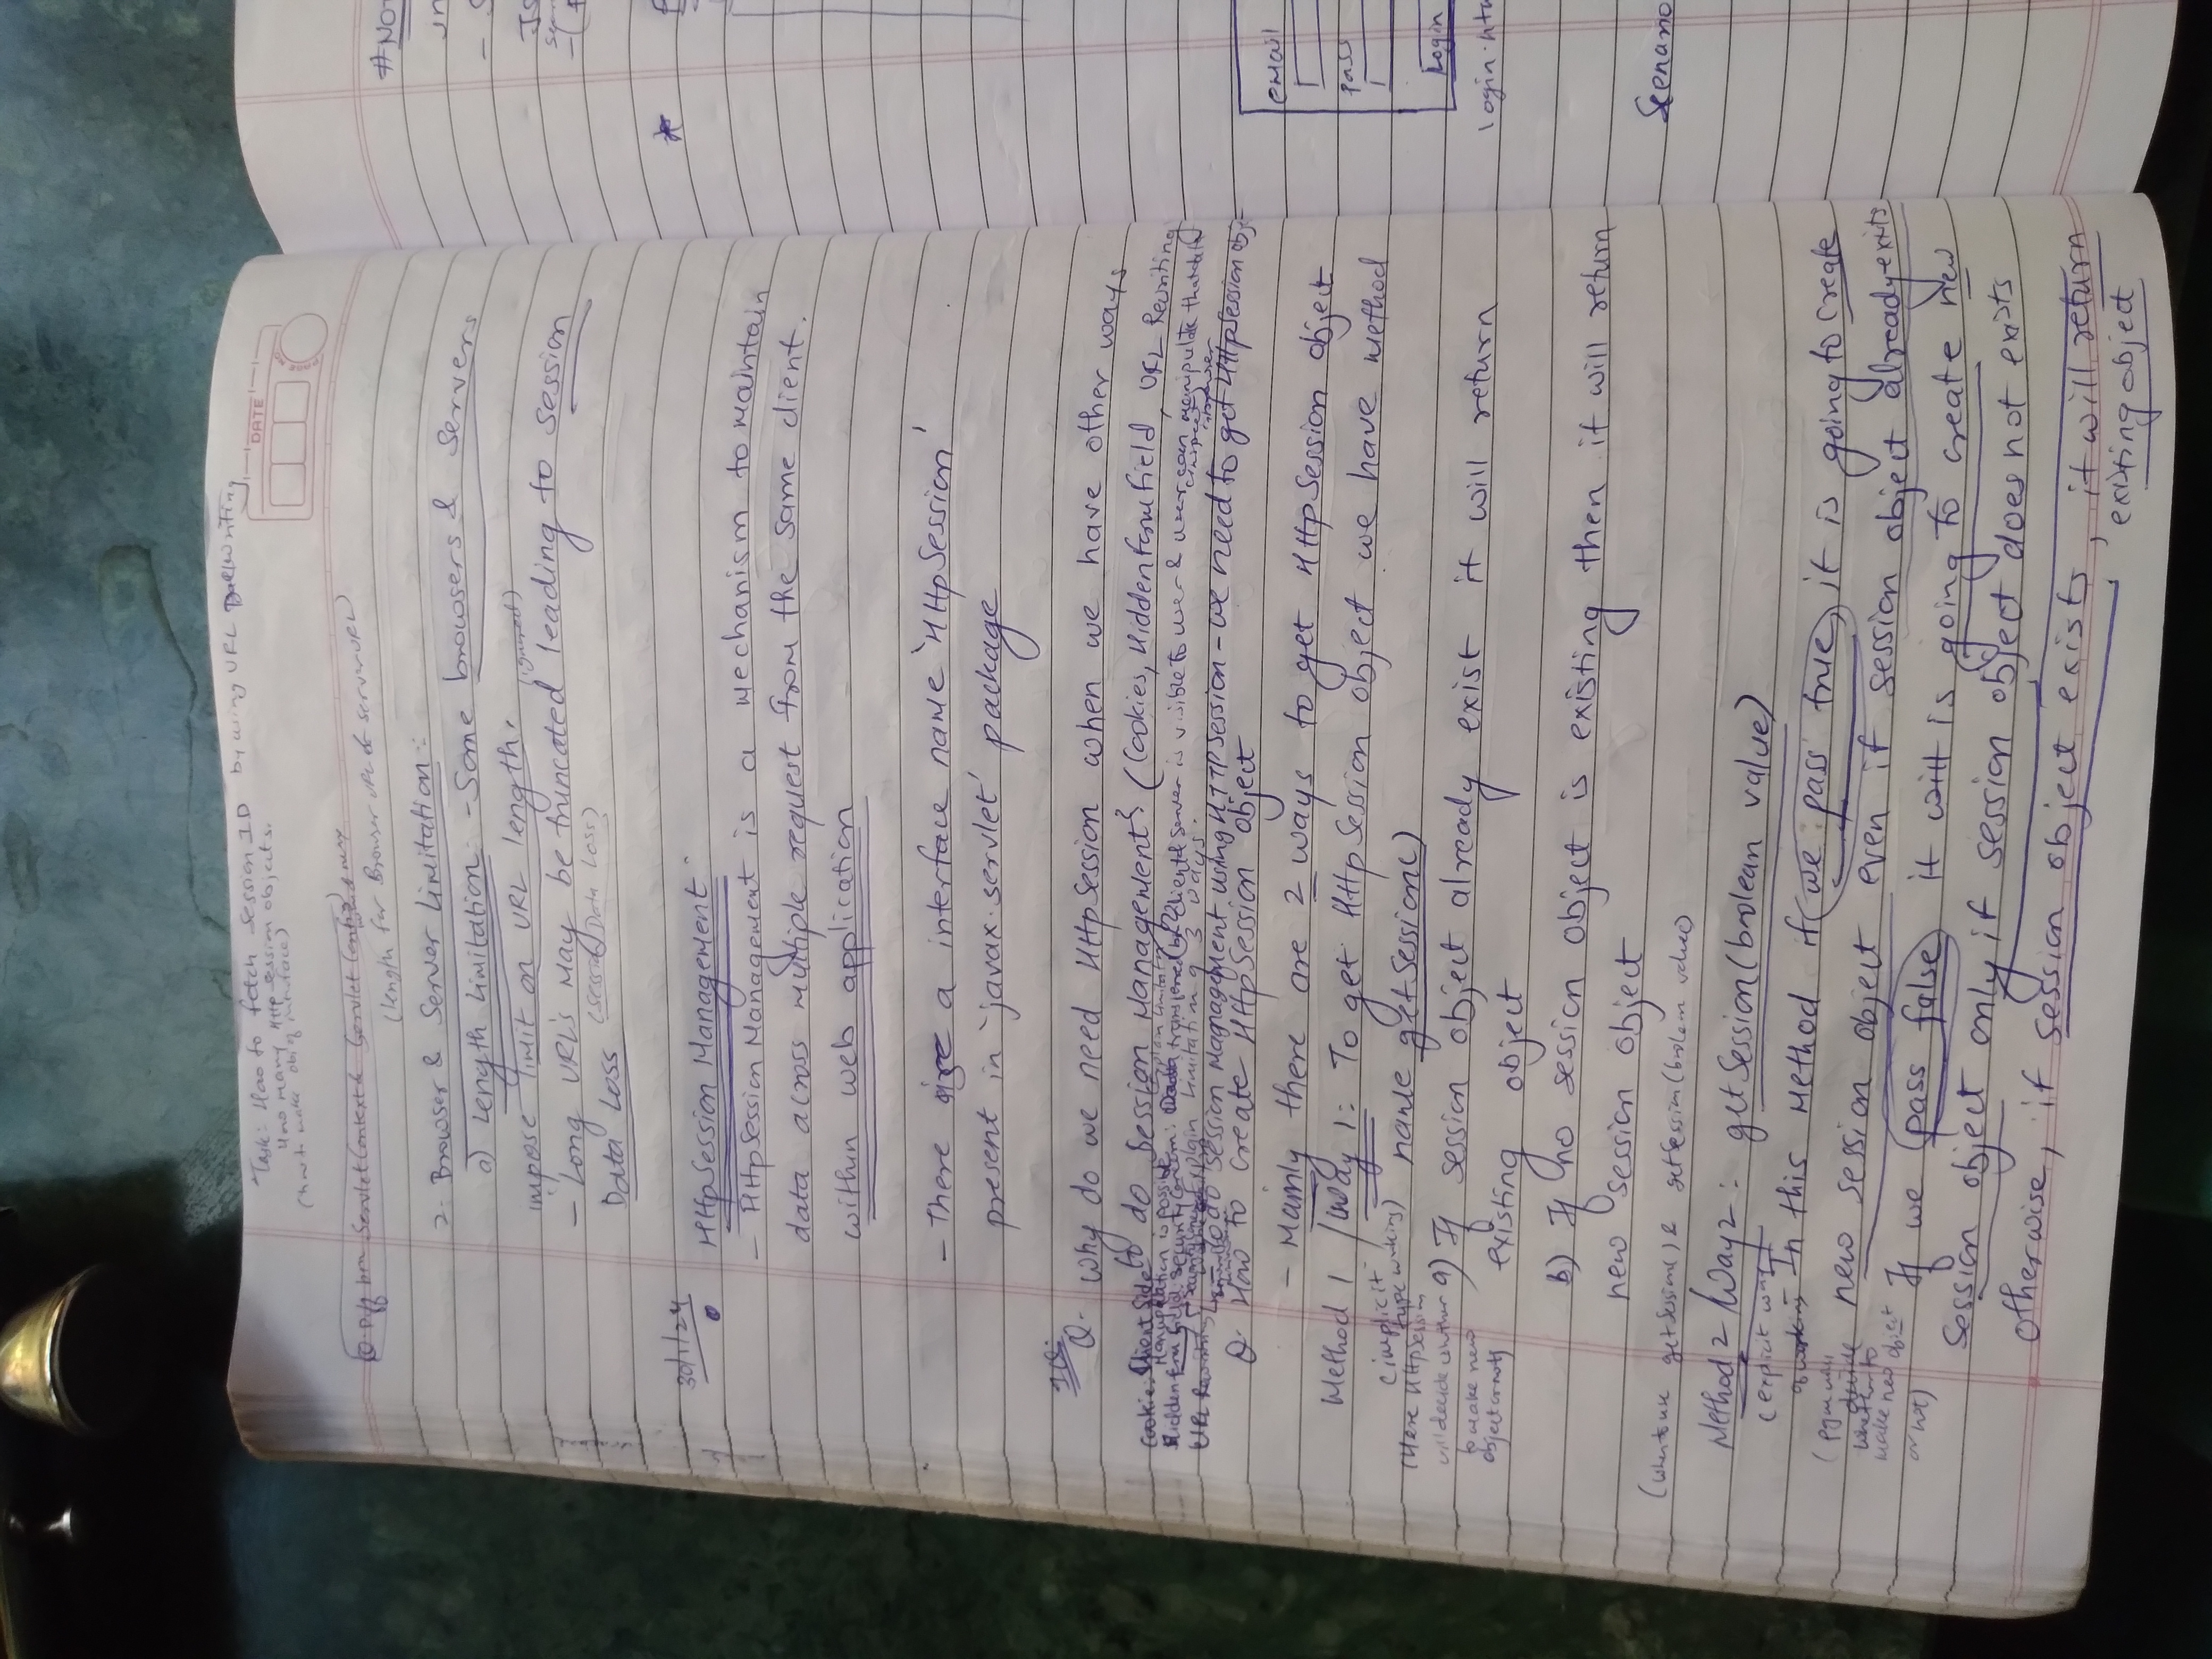 Task: How to fetch Session ID by using URL Rewriting
How many Http session objects.
(how to make obj of interface)
DATE
PAGE NO.
Q. Diff btn ServletContext & Servlet Config
(length for Browser URL & server URL)
2. Browser & Server Limitation:
a) Length Limitation - Some browsers & servers
impose limit on URL length.
(ignored)
- Long URL's may be truncated leading to session
Data Loss (session Data Loss)
30/1/24
HttpSession Management
- HttpSession Management is a mechanism to maintain
data across multiple request from the same client.
within web application
- There is a interface name 'HttpSession'
present in 'javax.servlet' package
IQ.
Q. Why do we need HttpSession when we have other ways
to do Session Management? (Cookies, Hidden form field, URL Rewriting
Cookie: Client Side
Manipulation is possible
Hidden form field: Security Concern: Data transferred btn client & server is visible to user & user can manipulate that data
URL Rewriting Explain Limitation of 3 ways.
To do session Magnagement using HTTPSession - we need to get HttpSession obj
Q. How to create HttpSession object
- Mainly there are 2 ways to get HttpSession object
Method 1 / Way 1: To get HttpSession object we have method
(implicit type working) name getSession()
(Here HttpSession
will decide whether
to make new
object or not)
a) If session object already exist it will return
existing object
b) If no session object is existing then it will return
new session object
(when to use getSession() & getSession(boolean value)
Method 2 / Way 2: getSession(boolean value)
(explicit way
of working
- In this method if we pass true, it is going to create
(pgm will
decide
whether to
make new object
or not)
new session object even if session object already exits
If we pass false it will is going to create new
session object only if session object does not exists
otherwise, if session object exists, it will return
existing object
#NO
in
email
pass
Login
login.ht
Scenario